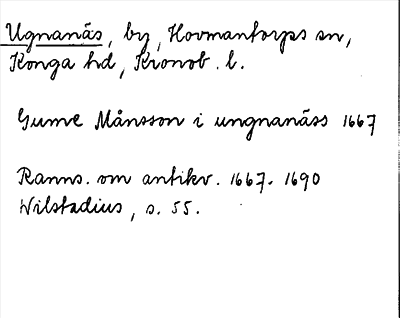 Ugnanäs, by, Hovmantorps sn,
Konga hd, Kronob. l.
Gume Månsson i ungnanäss 1667
Ranns. om antikv. 1667-1690
Wilstadius, s. 55.